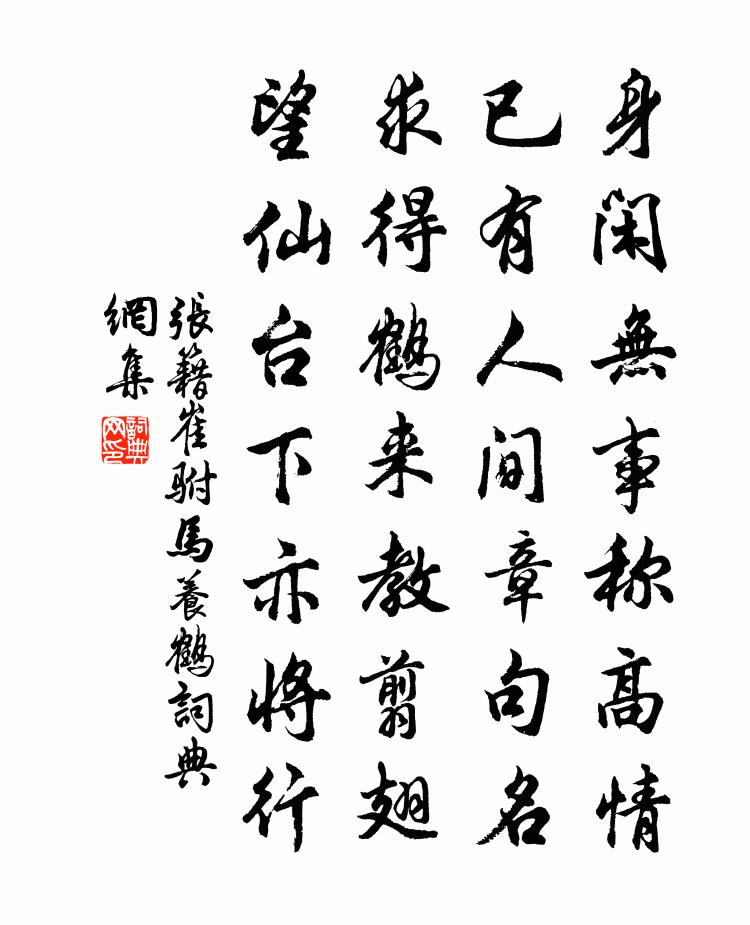 身閑無事称高情
已有人间章句名
求得鹤来教翦翅
望仙台下亦将行
張籍崔駙馬養鶴詞典
網集
詞典
网印